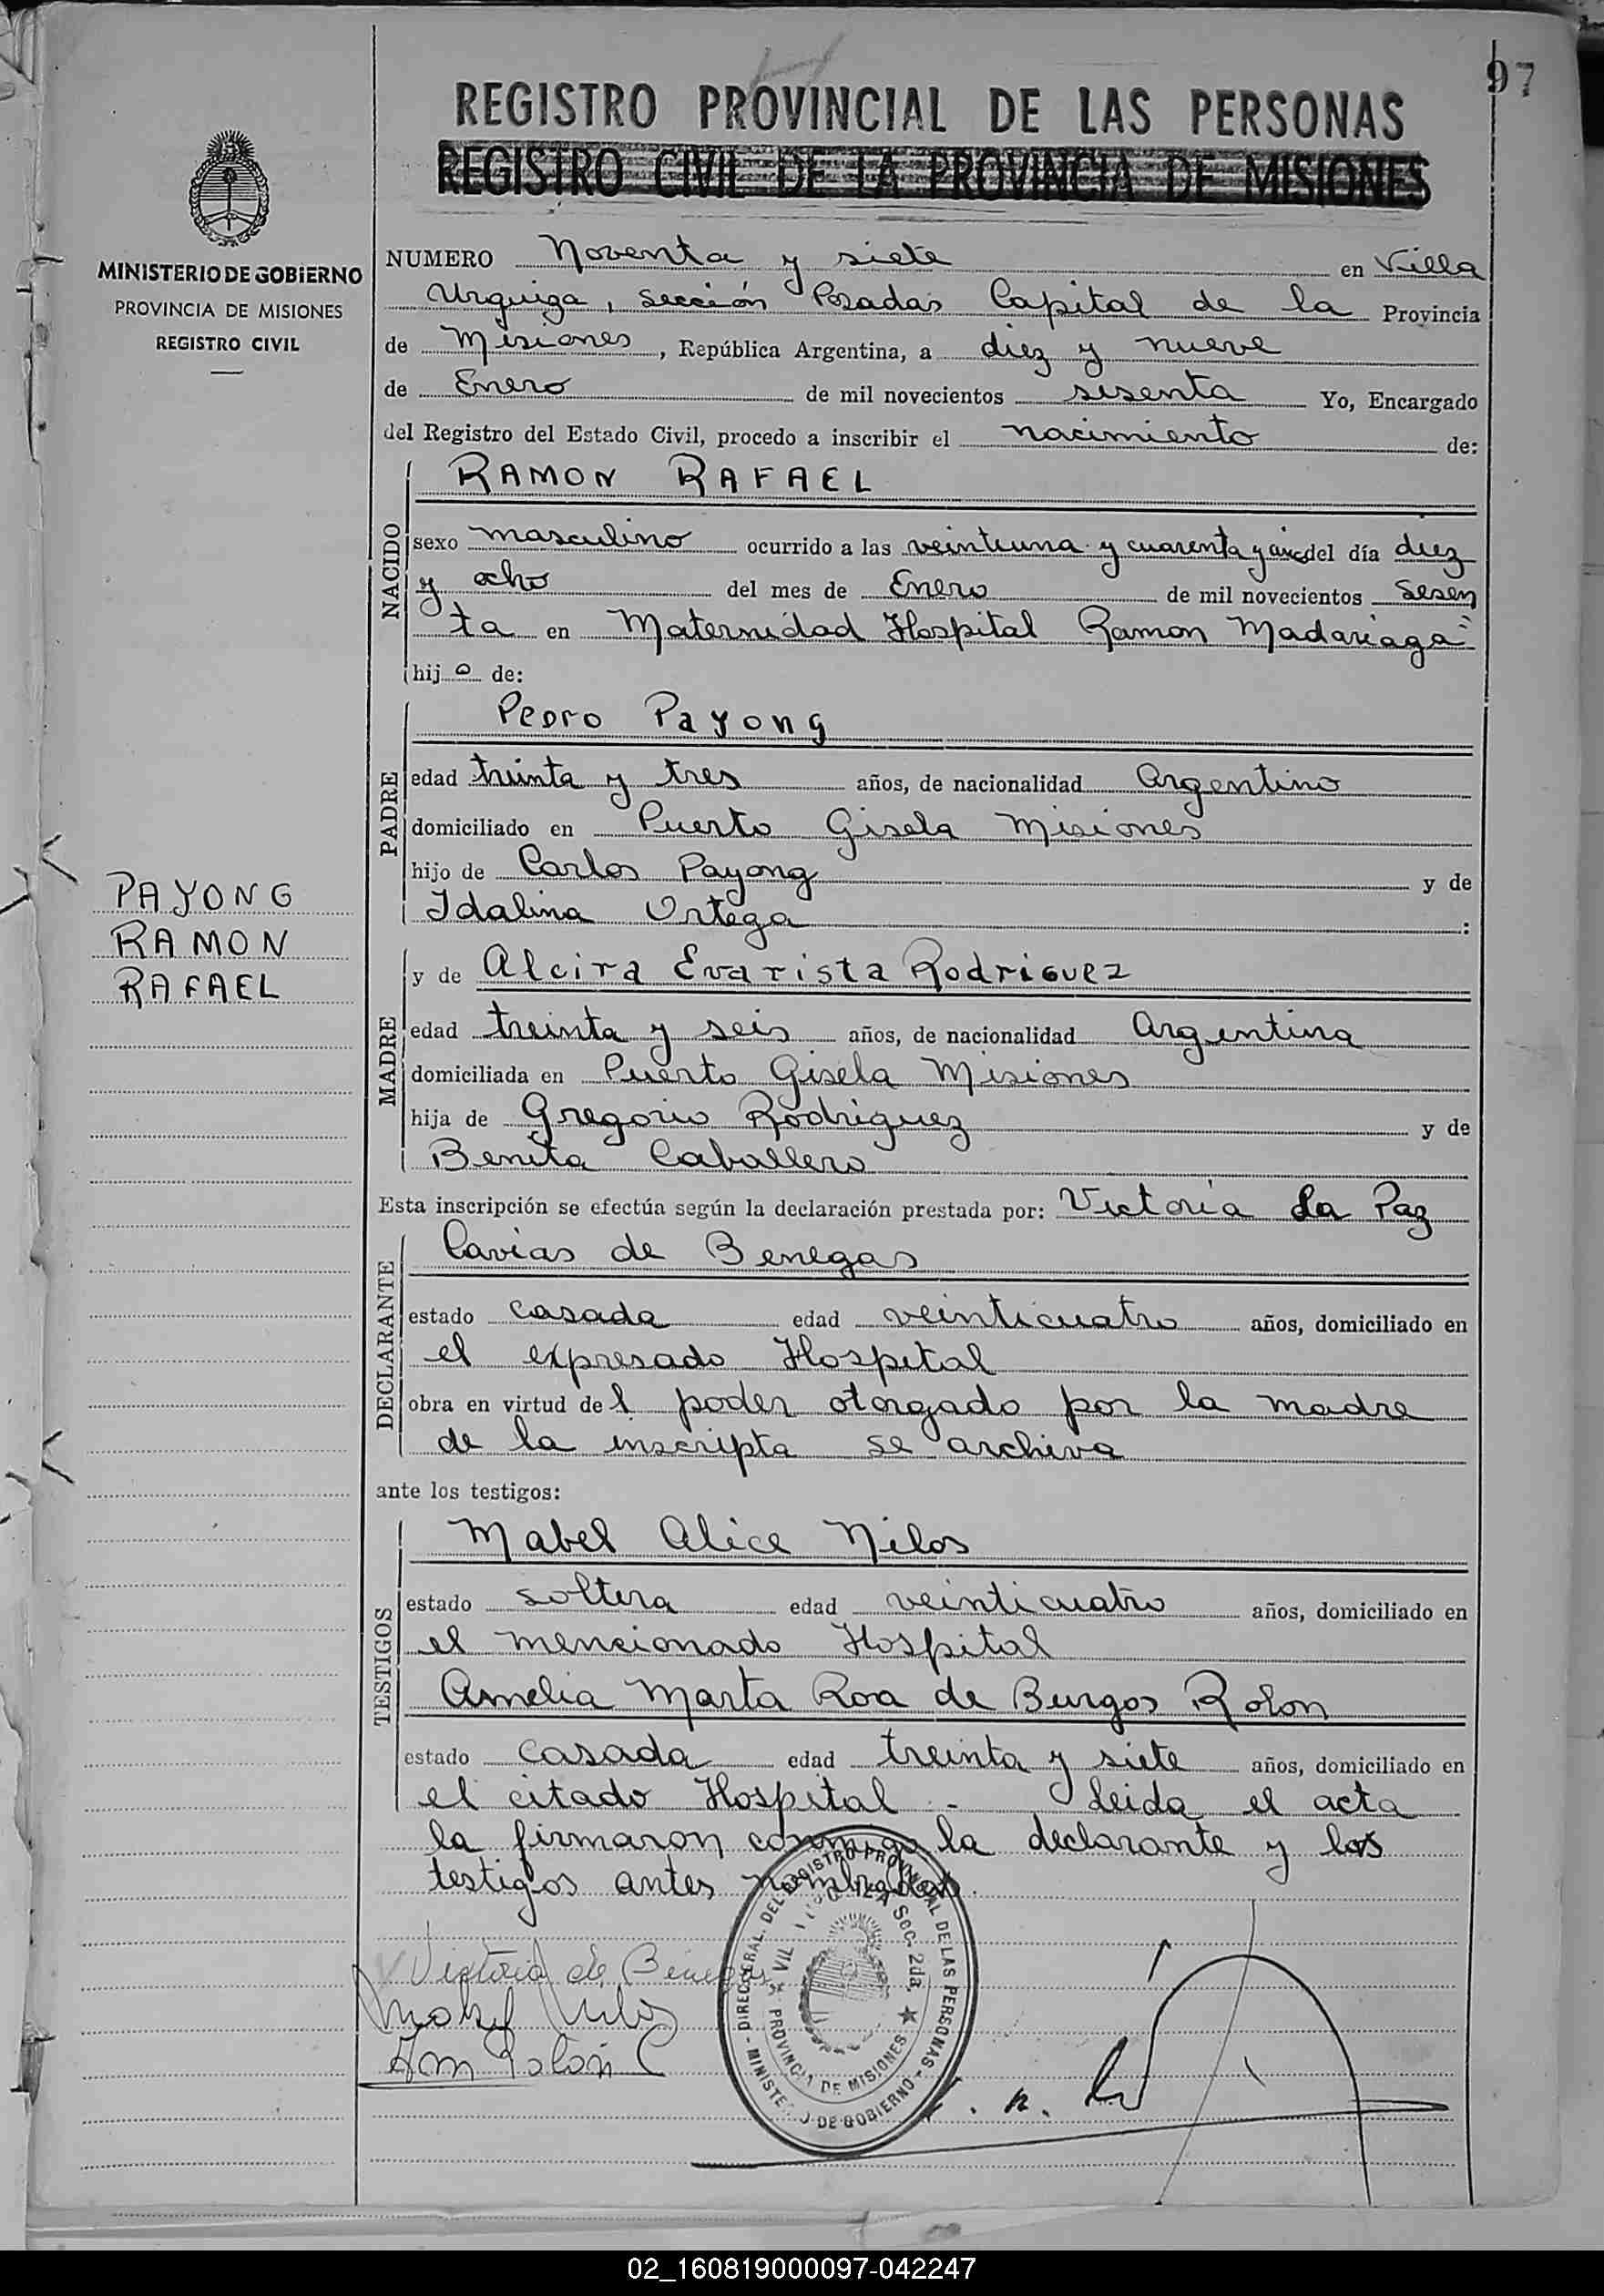 97
REGISTRO PROVINCIAL DE LAS PERSONAS
REGISTRO CIVIL DE LA PROVINCIA DE MISIONES
MINISTERIO DE GOBIERNO
PROVINCIA DE MISIONES
REGISTRO CIVIL
NUMERO Noventa y siete en Villa
Urquiza, sección Posadas Capital de la Provincia
de Misiones, República Argentina, a diez y nueve
de Enero de mil novecientos sesenta Yo, Encargado
del Registro del Estado Civil, procedo a inscribir el nacimiento de:
NACIDO
RAMON RAFAEL
sexo masculino ocurrido a las veintiuna y cuarenta y cinco del día diez
y ocho del mes de Enero de mil novecientos sesen
ta en Maternidad Hospital Ramon Madariaga"
hijo de:
PADRE
Pedro Payong
edad treinta y tres años, de nacionalidad Argentino
domiciliado en Puerto Gisela Misiones
hijo de Carlos Payong y de
Idalina Ortega :
PAYONG
RAMON
RAFAEL
MADRE
y de Alcira Evarista Rodriguez
edad treinta y seis años, de nacionalidad Argentina
domiciliada en Puerto Gisela Misiones
hija de Gregorio Rodriguez y de
Benita Caballero
Esta inscripción se efectúa según la declaración prestada por: Victoria La Paz
DECLARANTE
Cavias de Benegas
estado casada edad veinticuatro años, domiciliado en
el expresado Hospital
obra en virtud del poder otorgado por la madre
de la inscripta se archiva
ante los testigos:
TESTIGOS
Mabel Alice Nilos
estado soltera edad veinticuatro años, domiciliado en
el mencionado Hospital
Amelia Marta Roa de Burgos Rolon
estado casada edad treinta y siete años, domiciliado en
el citado Hospital - Leida el acta
la firmaron conmigo la declarante y los
testigos antes nombrados.
Victoria de Benegas
Mabel Nilos
Am Rolon
DIREC. GERAL. DEL REGISTRO PROVINCIAL DE LAS PERSONAS - MINISTERIO DE GOBIERNO -
Sec. 2da. ★ PROVINCIA DE MISIONES
02_160819000097-042247